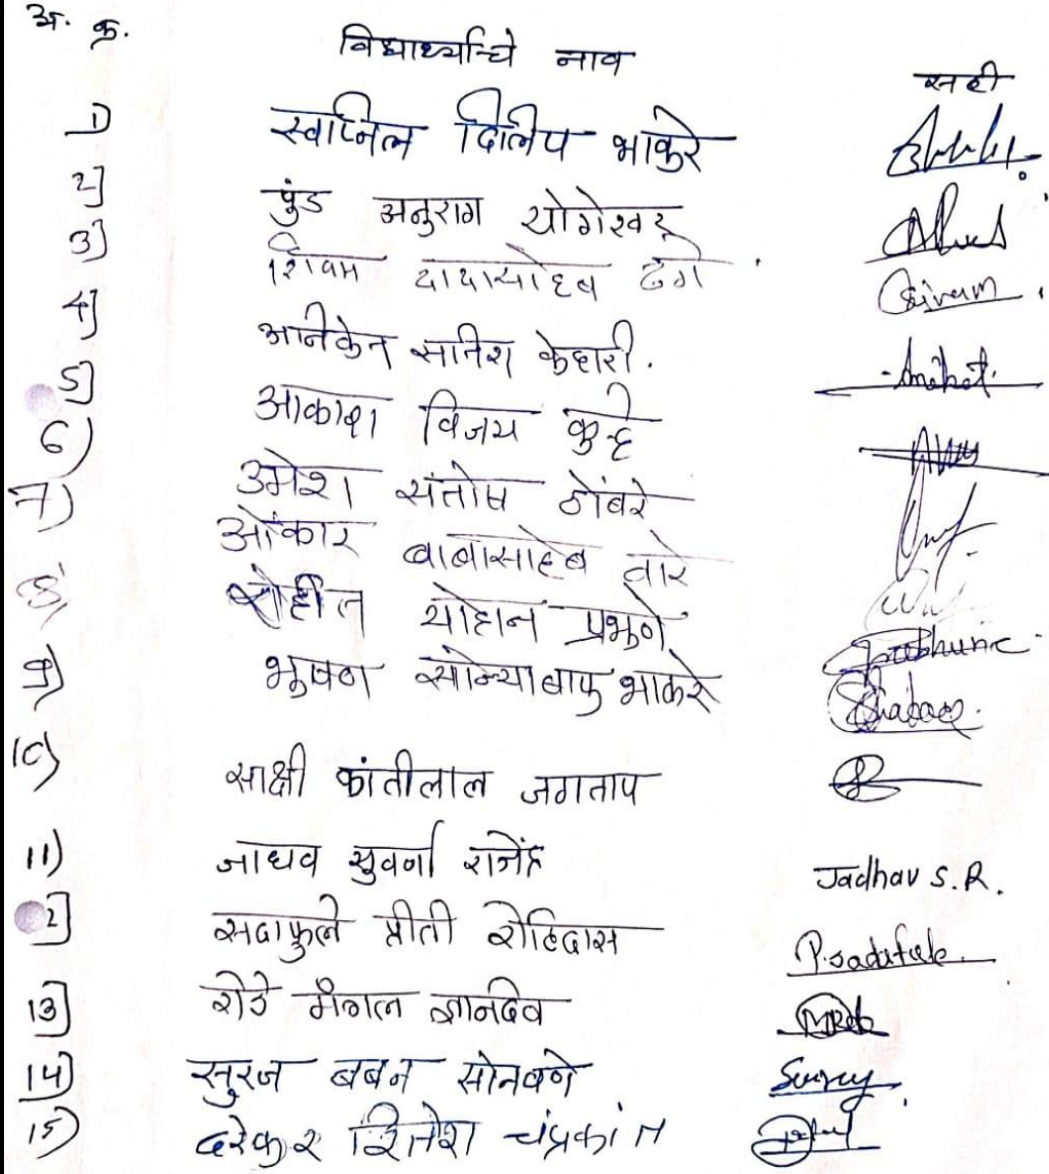 अ. क्र.
विद्यार्थ्यांचे नाव
सही
1) स्वप्निल दिलिप भाकरे
2] पुंड अनुराग योगेश्वर
3] शिवम दादासाहेब ढगे
4] अनिकेत सतिश केदारी.
5] आकाश विजय कुऱ्हे
6) उमेश संतोष ठोंबरे
7) ओंकार बाबासाहेब वारे
8) रोहीत योहान प्रभुणे Prabhune
9) भूषण सोन्याबापु भाकरे
10) साक्षी कांतीलाल जगताप
11) जाधव सुवर्णा राजेंद्र Jadhav S. R.
12] सदाफुले प्रीती रोहिदास P. sadafule.
13] शेरे मंगल ज्ञानदेव
14) सुरज बबन सोनवणे Suraj
15) दरेकर रितेश चंद्रकांत